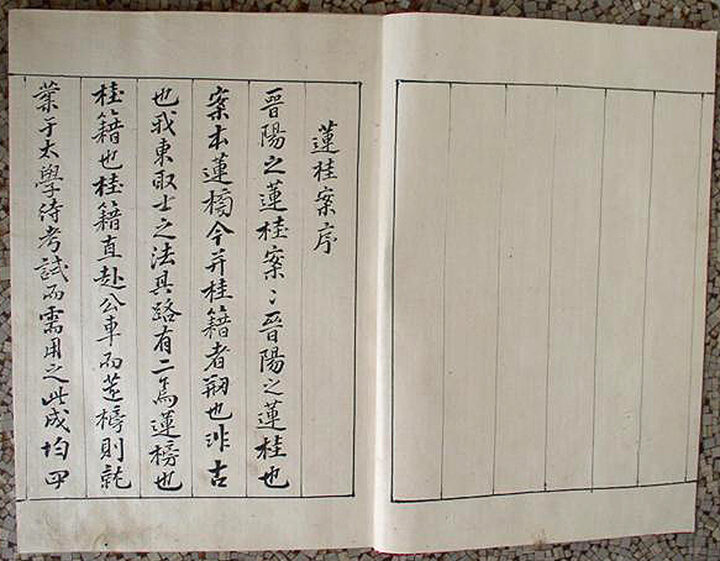 蓮桂案序
晉陽之蓮桂案〻晉陽之蓮桂也
案本蓮榜今并桂籍者刱也非古
也我東取士之法其路有二焉蓮榜也
桂籍也桂籍直赴公車而蓮榜則就
業于太學待考試而需用之此成均四